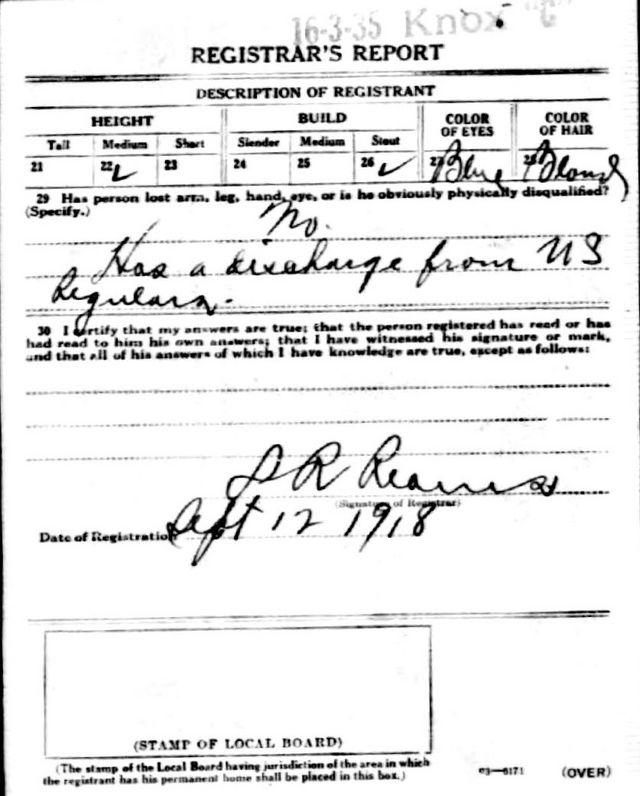 16-3-35 Knox "C"
REGISTRAR'S REPORT
DESCRIPTION OF REGISTRANT
HEIGHT BUILD COLOR OF EYES COLOR OF HAIR
Tall Medium Short Slender Medium Stout
21 22 ✓ 23 24 25 26 ✓ 27 Blue 28 Blond
29 Has person lost arm, leg, hand, eye, or is he obviously physically disqualified?
(Specify.) No.
Has a discharge from US
Regulars.
30 I certify that my answers are true; that the person registered has read or has
had read to him his own answers; that I have witnessed his signature or mark,
and that all of his answers of which I have knowledge are true, except as follows:
R
(Signature of Registrar)
Date of Registration Sept 12 1918
(STAMP OF LOCAL BOARD)
(The stamp of the Local Board having jurisdiction of the area in which
the registrant has his permanent home shall be placed in this box.)
03—6171 (OVER)